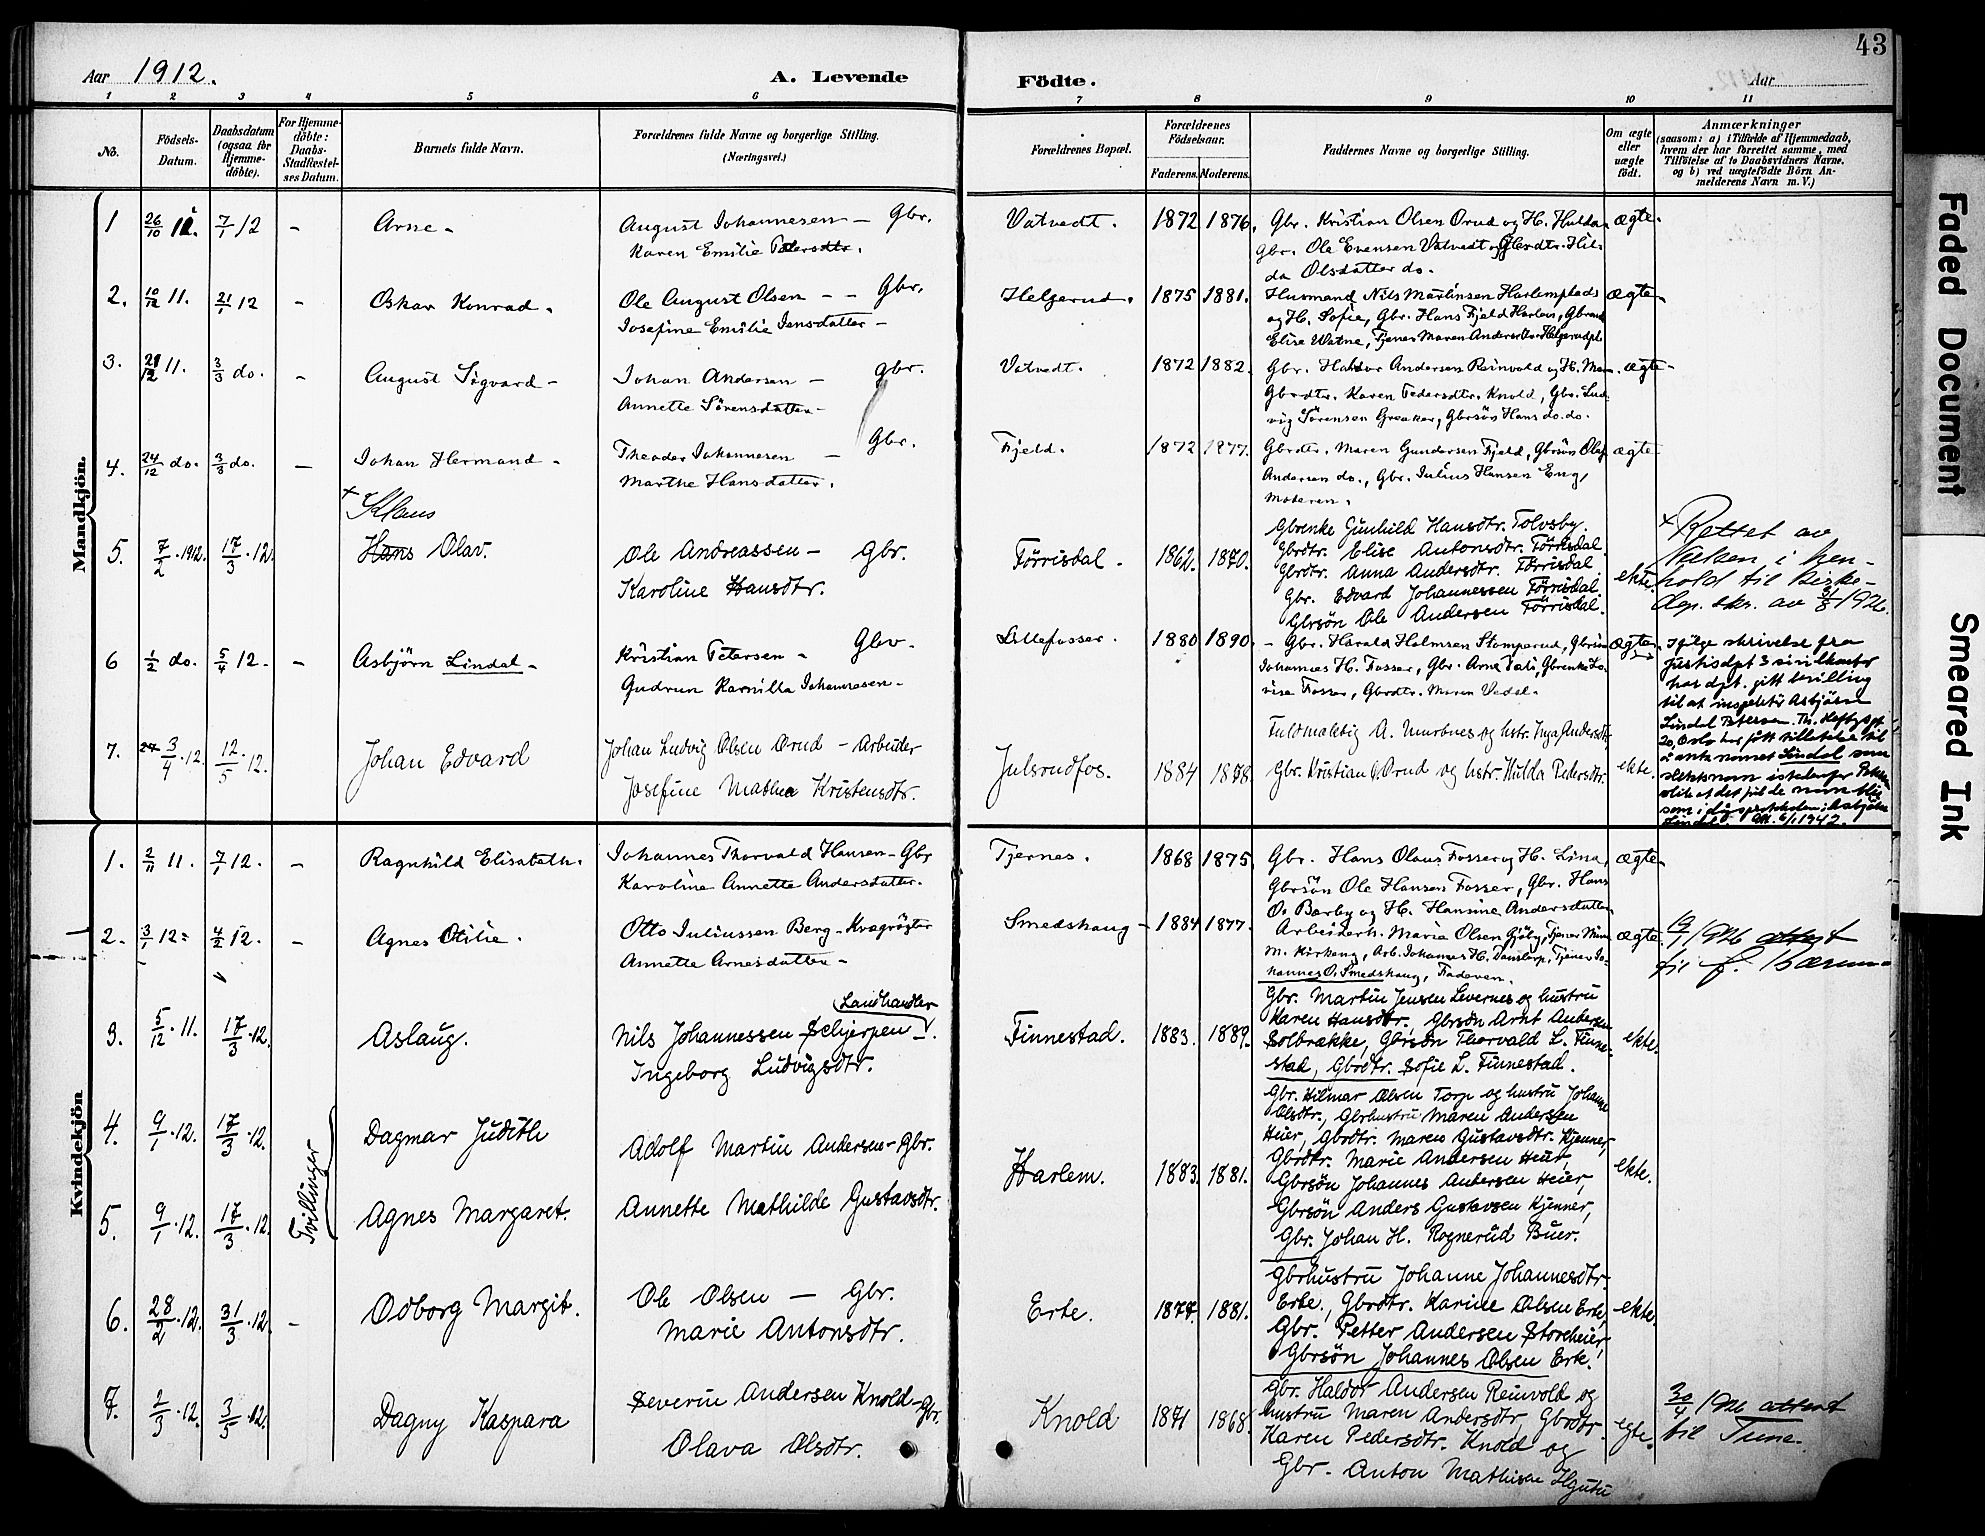 43
Aar 1912.
A. Levende Födte.
Aar
1 2 3 4 5 6 7 8 9 10 11
No.
Födsels-Datum.
Daabsdatum (ogsaa for Hjemme-döbte).
For Hjemme-döbte: Daabs-Stadfæstel-ses Datum.
Barnets fulde Navn.
Forældrenes fulde Navne og borgerlige Stilling. (Næringsvei.)
Forældrenes Bopæl.
Forældrenes Födselsaar.
Faderens. Moderens.
Faddernes Navne og borgerlige Stilling.
Om ægte eller uægte födt.
Anmærkninger
(saasom: a) i Tilfælde af Hjemmedaab,
hvem der har forrettet samme, med
Tilföielse af to Daabsvidners Navne,
og b) ved uægtefödte Börn An-
melderens Navn m. V.)
Mandkjön.
1 26/10 11. 7/1 12 - Arne - August Johannesen - Gbr.
Karen Emilie Pedersdtr.
Vatvedt. 1872 1876.
Gbr. Kristian Olsen Ørud og H. Hulda
Gbr. Ole Evensen Vatvedt og Gbrdtr. Hil-
da Olsdatter do.
ægte.
2. 10/12 11. 21/1 12 - Oskar Konrad. Ole August Olsen - - Gbr.
Josefine Emilie Jensdatter -
Helgerud. 1875 1881.
Husmand Nils Martinsen Harlemplads
og H. Sofie, Gbr. Hans Fjeld Harlem, Gbrenke
Elise Watne, Tjener Maren Andersdtr Helgerudpl
ægte.
3. 29/12 11. 3/3 do. - August Sigvard - Johan Andersen - gbr.
Annette Sörensdatter -
Vatvedt. 1872 1882.
Gbr. Haldor Andersen Reinvold og H. Maren.
Gbrdtr. Karen Pedersdtr. Knold, Gbr. Lud-
vig Sörensen Greaker, Gbrsön Hans do. do.
ægte
4. 24/12 do. 3/3 do. - Johan Hermand - Theodor Johannesen - Gbr.
Marthe Hansdatter.
Fjeld. 1872 1877.
Gbrdtr. Maren Gundersen Fjeld, Gbrsön Olaf
Andersen do., Gbr. Julius Hansen Eng,
Moderen.
ægte
5. 7/2 1912. 17/3 12. × Klaus
Hans Olav. Ole Andreassen - Gbr.
Karoline Hansdtr.
Törrisdal. 1862. 1870.
Gbrenke Gunhild Hansdtr. Tolvsby.
Gbrdtr. Elise Antonsdtr. Törrisdal.
Gbrdtr. Anna Andersdtr. Törrisdal.
Gbr. Edvard Johannessen Törrisdal.
Gbrsön Ole Andersen Törrisdal.
ekte.
× Rettet av
Nielsen i hen-
hold til kirke-
dep. skr. av 31/8 1926.
6 1/2 do. 5/4 12. - Asbjörn Lindal - Kristian Petersen - Gbr.
Gudrun Karnilla Johannesen -
Lillefosser. 1880 1890.
- Gbr. Harald Holmsen Stomperud, Gbrsön
Johannes H. Fosser, Gbr. Arne Dali, Gbrenke Lo-
vise Fosser, Gbrdtr. Maren Vedel.
ægte
Ifölge skrivelse fra
justisdpt 3 sivilkontor
har dpt. gitt bevilling
til at inspektör Asbjörn
Lindal Petersen, Th. Heftyes gt.
20, Oslo har fått tillatelse til
å anta navnet Lindal som
slektsnavn istedenfor Petersen
slik at det fulde navn blir
som i dåpsprotokollen: Asbjörn
Lindal. 6/1 1942.
7. 3/4 12. 12/5 12. Johan Edvard Johan Ludvig Olsen Ørud - Arbeider
Josefine Mathea Kristensdtr.
Julsrudfos. 1884 1878
Fuldmektig A. Murbnes og hstr. Inga Andersdtr.
Gbr. Kristian O. Ørud og hstr. Hulda Pedersdtr.
ekte.
Kvindekjön
1. 2/11 11. 7/1 12. - Ragnhild Elisabeth. Johannes Thorvald Hansen - Gbr
Karoline Annette Andersdatter.
Tjernes. 1868 1875.
Gbr. Hans Olaus Fosser og H. Lina,
Gbrsön Ole Hansen Fosser, Gbr. Hans
O. Barby og H. Hansine Andersdatter
ægte
2. 3/1 12. 4/2 12. - Agnes Otilie. Otto Juliussen Berg - Kvægrögter
Annette Arnesdatter -
Smedshaug - 1884 1877.
Arbeiderh. Maria Olsen Gjöby, Tjener
m. Kirkeng, Arb. Johannes H. Danstorp, Tjener Jo-
hannes O. Smedshaug, Faderen.
ægte.
19/1 1926 attest
til f. Bærum
3. 5/12 11. 17/3 12. Aslaug. Nils Johannessen Schjerpen - Landhandler
Ingeborg Ludvigsdtr.
Finnestad. 1883. 1889.
Gbr. Martin Jensen Levernes og hustru
Karen Hansdtr., Gbrsön Arnt Andersen
Solbrække, Gbrsön Thorvald L. Finne-
stad, Gbrdtr. Sofie L. Finnestad.
ekte.
4. 9/1 12. 17/3 12. Tvillinger Dagmar Judith
Adolf Martin Andersen - Gbr.
5. 9/1 12. 17/3 12. Agnes Margaret. Annette Mathilde Gustavsdtr.
Harlem. 1883. 1881.
Gbr. Hilmar Olsen Torp og hustru Johanne
Olsdtr., Gbrhustru Maren Andersen
Heier, Gbrdtr. Maren Gustavsdtr. Kjenner,
Gbrdtr. Marie Andersen Heier,
Gbrsön Johannes Andersen Heier,
Gbrsön Anders Gustavsen Kjenner,
Gbr. Johan H. Rognerud Buer.
ekte.
6. 28/2 12. 31/3 12. - Odborg Margit. Ole Olsen - Gbr.
Marie Antonsdtr.
Erte. 1877. 1881.
Gbrhustru Johanne Johannesdtr.
Erte., Gbrdtr. Karine Olsen Erte,
Gbr. Petter Andersen Storeheier,
Gbrsön Johannes Olsen Erte.
ekte.
7. 2/3 12. 3/5 12. Dagny Kaspara Severin Andersen Knold - Gbr.
Olava Olsdtr.
Knold 1871 1868.
Gbr. Haldor Andersen Reinvold og
hustru Maren Andersdtr, Gbrdtr
Karen Pedersdtr. Knold og
Gbr. Anton Mathisen
egte.
30/4 1926 attest
til Tune.
Faded Document
Smeared Ink